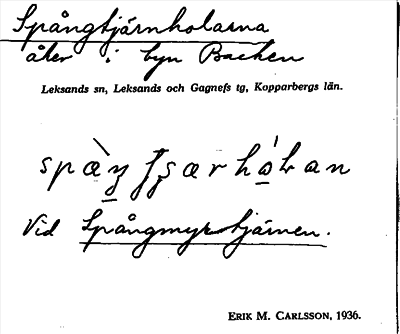 Spångtjärnholarna
åker i byn Backen
Leksands sn, Leksands och Gagnefs tg, Kopparbergs län.
Vid Spångmyrtjärnen.
ERIK M. CARLSSON, 1936.